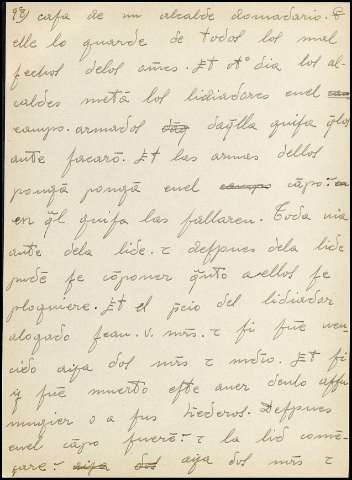 98) casa de un alcalde domadario. E
elle lo guarde de todos los mal
fechos delos oms. Et ot° dia los al-
caldes metã los lidiadores enel
campo. armados daq̃lla guisa q̃los
ante sacarõ. Et las armas dellos
pongã pongã enel campo cãpo:
en q̃l guisa las fallaren. Toda uia
ante dela lide. τ despues dela lide
puede se cõponer q̃nto aellos se
ploguiere. Et el p̃cio del lidiador
alogado sean .v. mr̃s. τ si fue uen-
cido aya dos mr̃s τ medio. Et si
y fue muerto este auer deulo a ssu
mugier o a sus h̃ederos. Despues
enel cãpo fuerõ: τ la lid comẽ-
çare: aya dos aya dos mr̃s τ